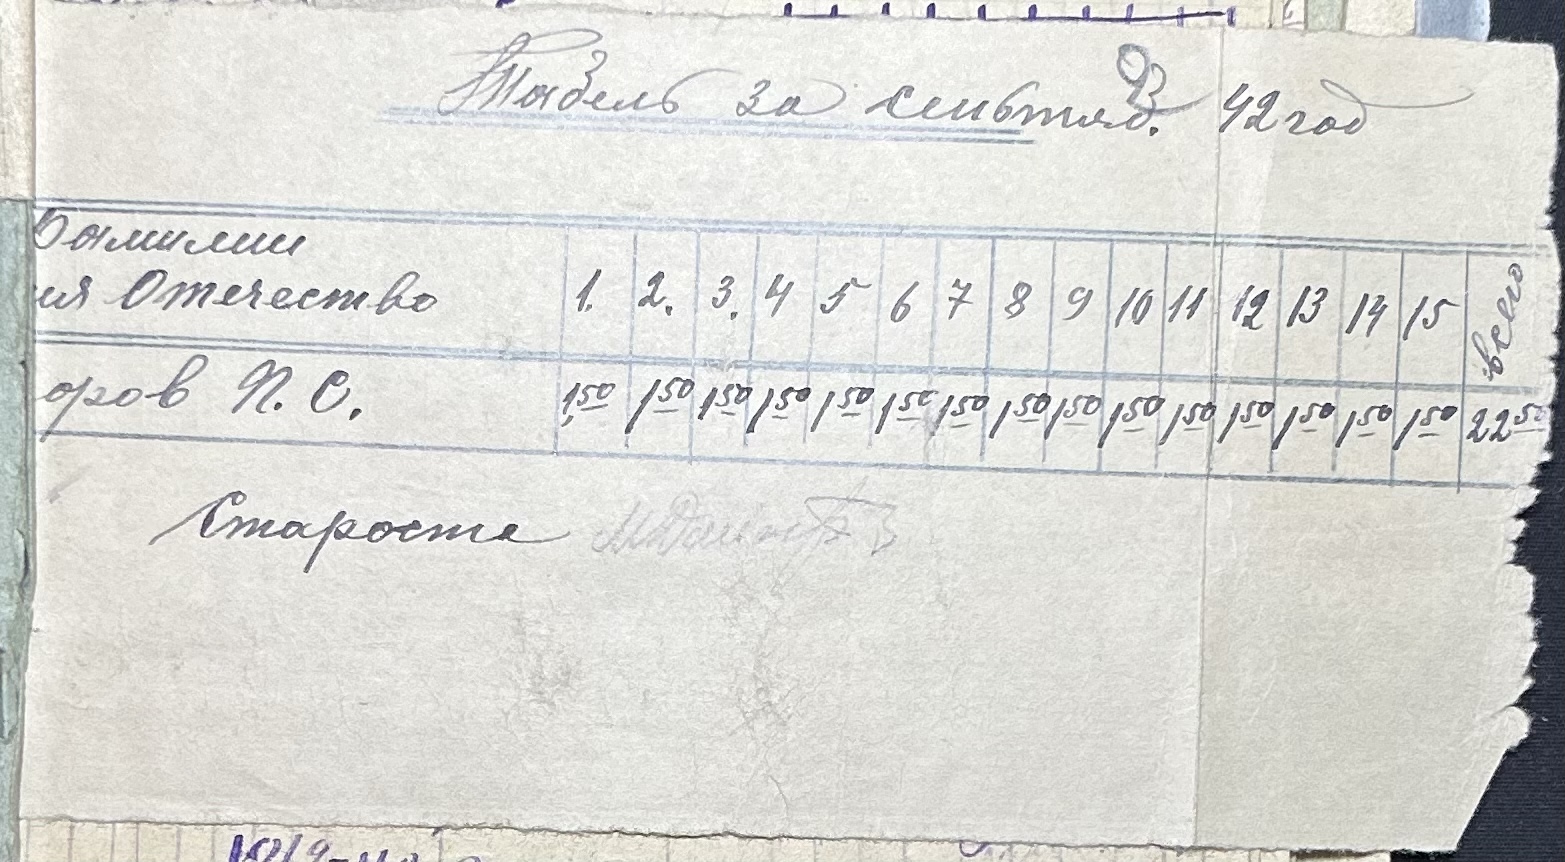 Табель за сентяб. 42 год
93
Фамилии
ия Отчество 1. 2. 3. 4 5 6 7 8 9 10 11 12 13 14 15 всего
оров П. С. 1,50 1 50 1 50 1 50 1 50 1 50 1 50 1 50 1 50 1 50 1 50 1 50 1 50 1 50 1 50 22 50
Староста